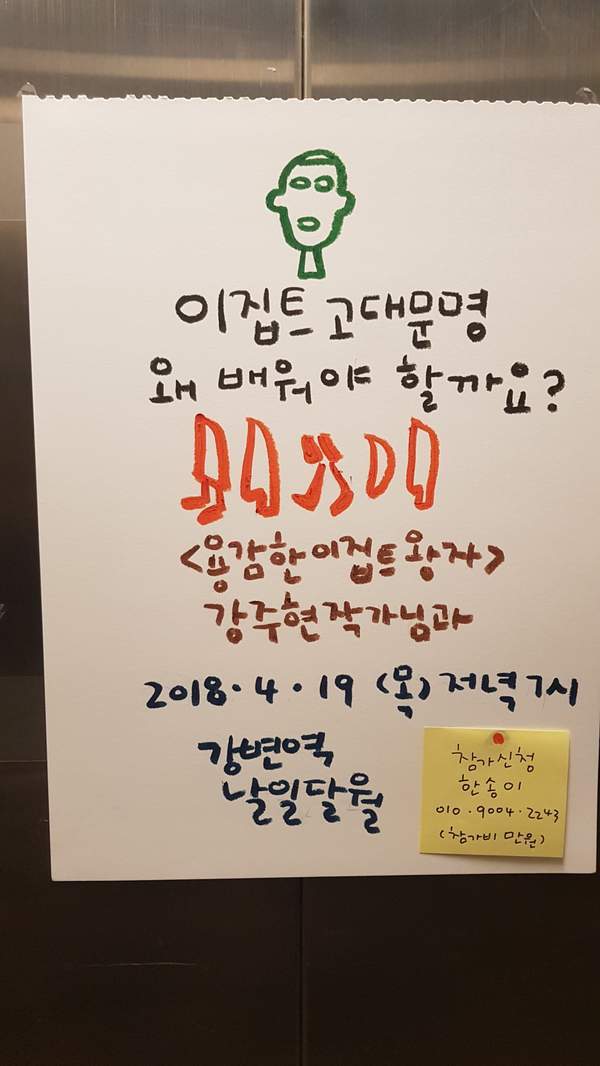 이집트 고대문명
왜 배워야 할까요?
<용감한이집트왕자>
강주현작가님과
2018.4.19 (목) 저녁 7시
강변역
날일달월
참가신청
한송이
010.9004.2243
(참가비 만원)